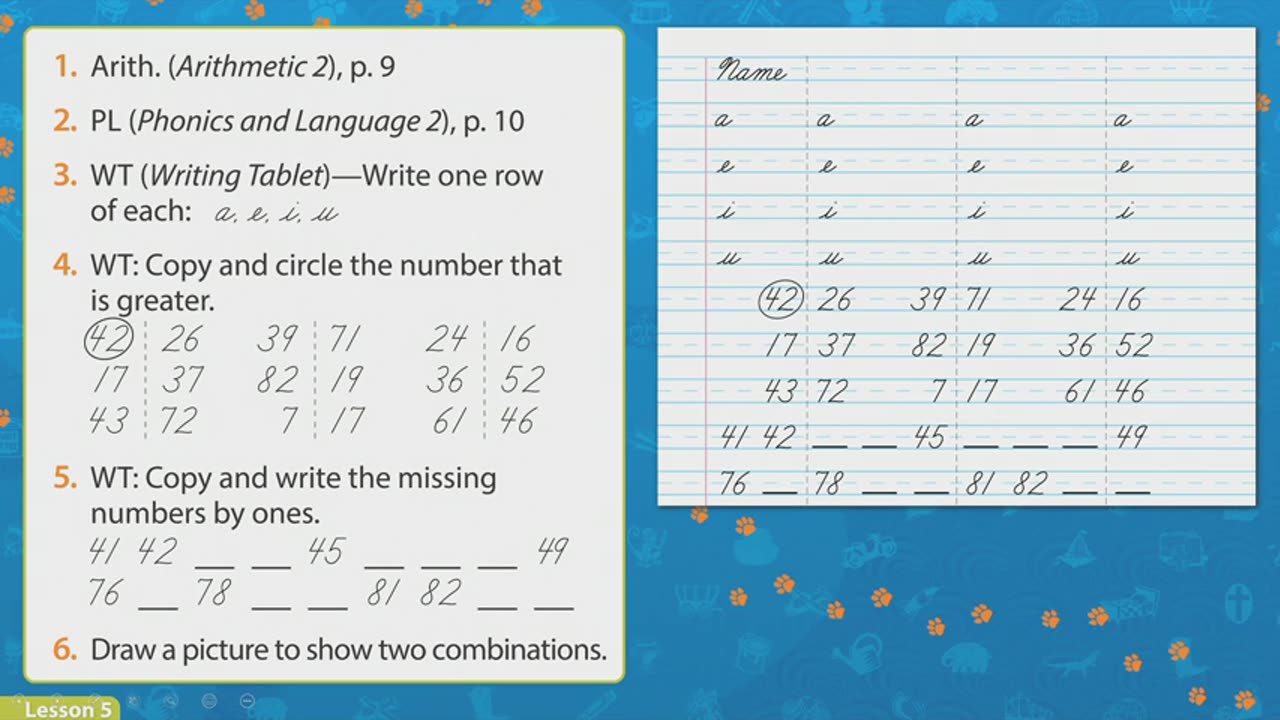 1. Arith. (Arithmetic 2), p. 9
2. PL (Phonics and Language 2), p. 10
3. WT (Writing Tablet)—Write one row
of each: a, e, i, u
4. WT: Copy and circle the number that
is greater.
42 26 39 71 24 16
17 37 82 19 36 52
43 72 7 17 61 46
5. WT: Copy and write the missing
numbers by ones.
41 42 __ __ 45 __ __ __ 49
76 __ 78 __ __ 81 82 __ __
6. Draw a picture to show two combinations.
Lesson 5
Name
a a a a
e e e e
i i i i
u u u u
42 26 39 71 24 16
17 37 82 19 36 52
43 72 7 17 61 46
41 42 __ __ 45 __ __ __ 49
76 __ 78 __ __ 81 82 __ __